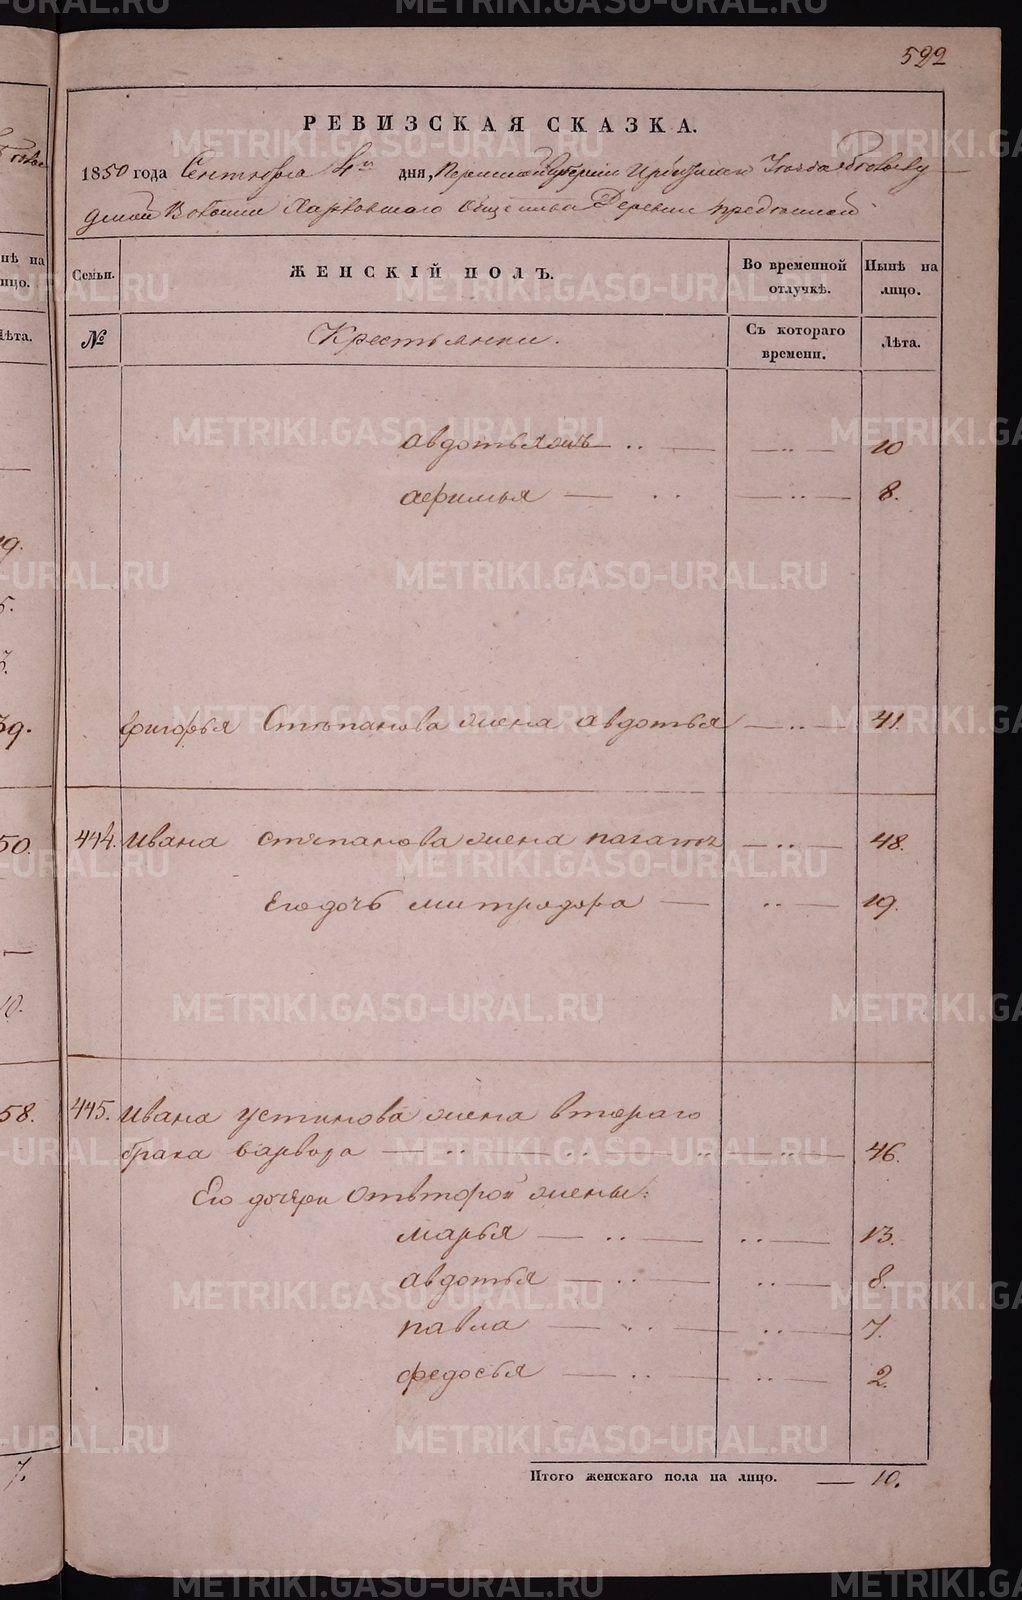 522
РЕВИЗСКАЯ СКАЗКА.
1850 года Сентября 4го дня, Пермской Губернии Ирбитскаго Уезда
Волости Харловскаго Общества Деревни
Семьи. ЖЕНСКІЙ ПОЛЪ. Во временной отлучкѣ. Нынѣ на лицо.
№ Крестьянки. Съ котораго времени. Лѣта.
авдотья 10
афимья 8.
григорья Степанова жена авдотья 41.
444. ивана степанова жена 48.
Его дочь митродора 19.
445. ивана устинова жена втораго
брака варвара 46.
Его дочери от второй жены:
марья 13.
авдотья 8.
павла 7.
федосья 2.
Итого женскаго пола на лицо. 10.
METRIKI.GASO-URAL.RU